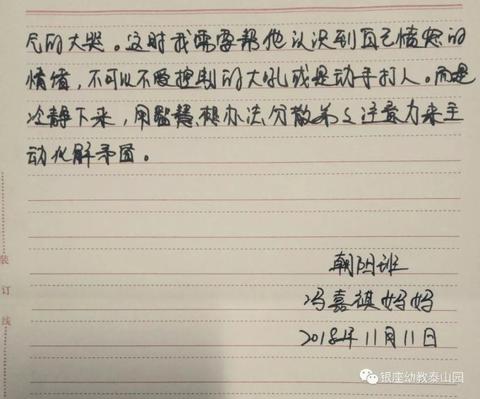 尺的大哭。这时我需要帮他认识到自己愤怒的
情绪，不可以不受控制的大吼或是动手打人。而是
冷静下来，用智慧想办法分散弟弟注意力来主
动化解矛盾。
朝阳班
冯嘉祺妈妈
2018年11月11日
装订线
银座幼教泰山园